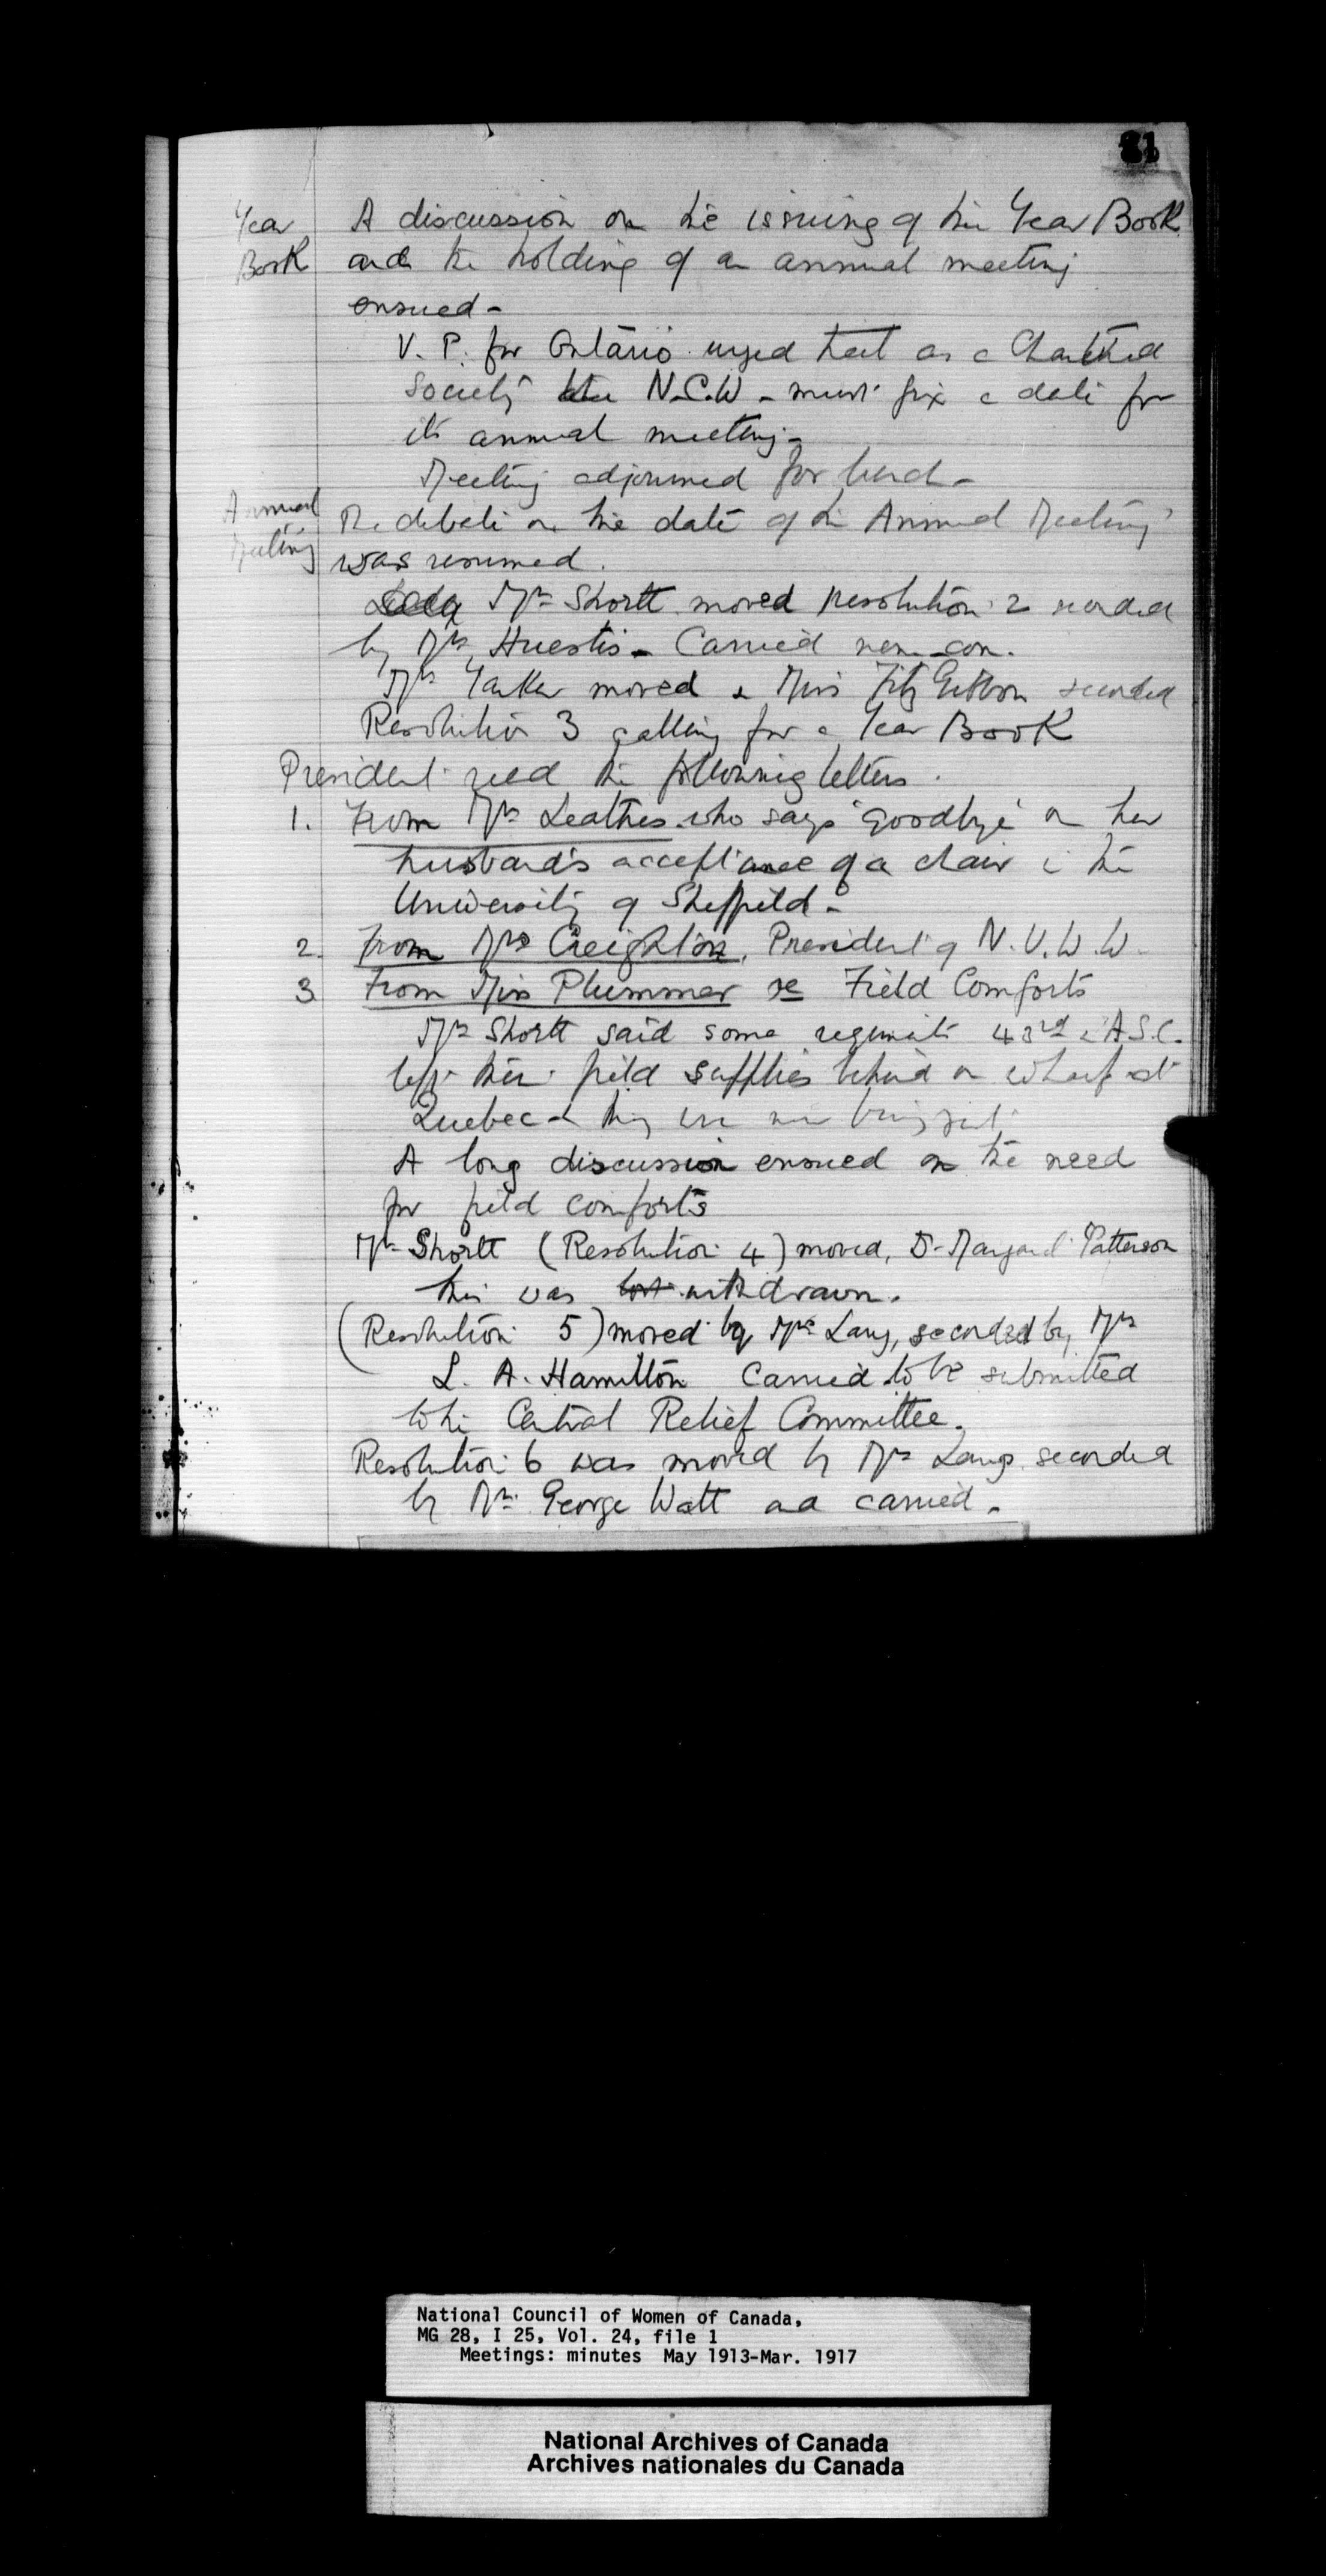 81
Year A discussion on the issuing of the Year Book
Book and the holding of an annual meeting
ensued -
V. P. for Ontario urged that as a Chartered
Society the N.C.W - must fix a date for
its annual meeting -
Meeting adjourned for lunch -
Annual The debate on the date of the Annual Meeting
Meeting was resumed.
Mrs Shortt moved resolution 2 seconded
by Mrs Huestis - Carried nem-con.
Mrs Yarker moved & Miss FitzGibbon seconded
Resolution 3 calling for a Year Book
President read the following letters.
1. From Mrs Leathes who says "goodbye" on her
husband's acceptance of a chair in the
University of Sheffield -
2. From Mrs Creighton, President of N.U.W.W.
3 From Miss Plummer re Field Comforts
Mrs Shortt said some regiments 43rd & A.S.C.
left their field supplies behind on wharf at
Quebec & they
A long discussion ensued on the need
for field comforts
Mrs Shortt (Resolution 4) moved, Dr Margaret Patterson
this was lost withdrawn.
(Resolution 5) moved by Mrs Lang, seconded by Mrs
L. A. Hamilton Carried to be submitted
to the Central Relief Committee.
Resolution 6 was moved by Mrs Lang seconded
by Mrs George Watt and carried -
National Council of Women of Canada,
MG 28, I 25, Vol. 24, file 1
Meetings: minutes May 1913-Mar. 1917
National Archives of Canada
Archives nationales du Canada